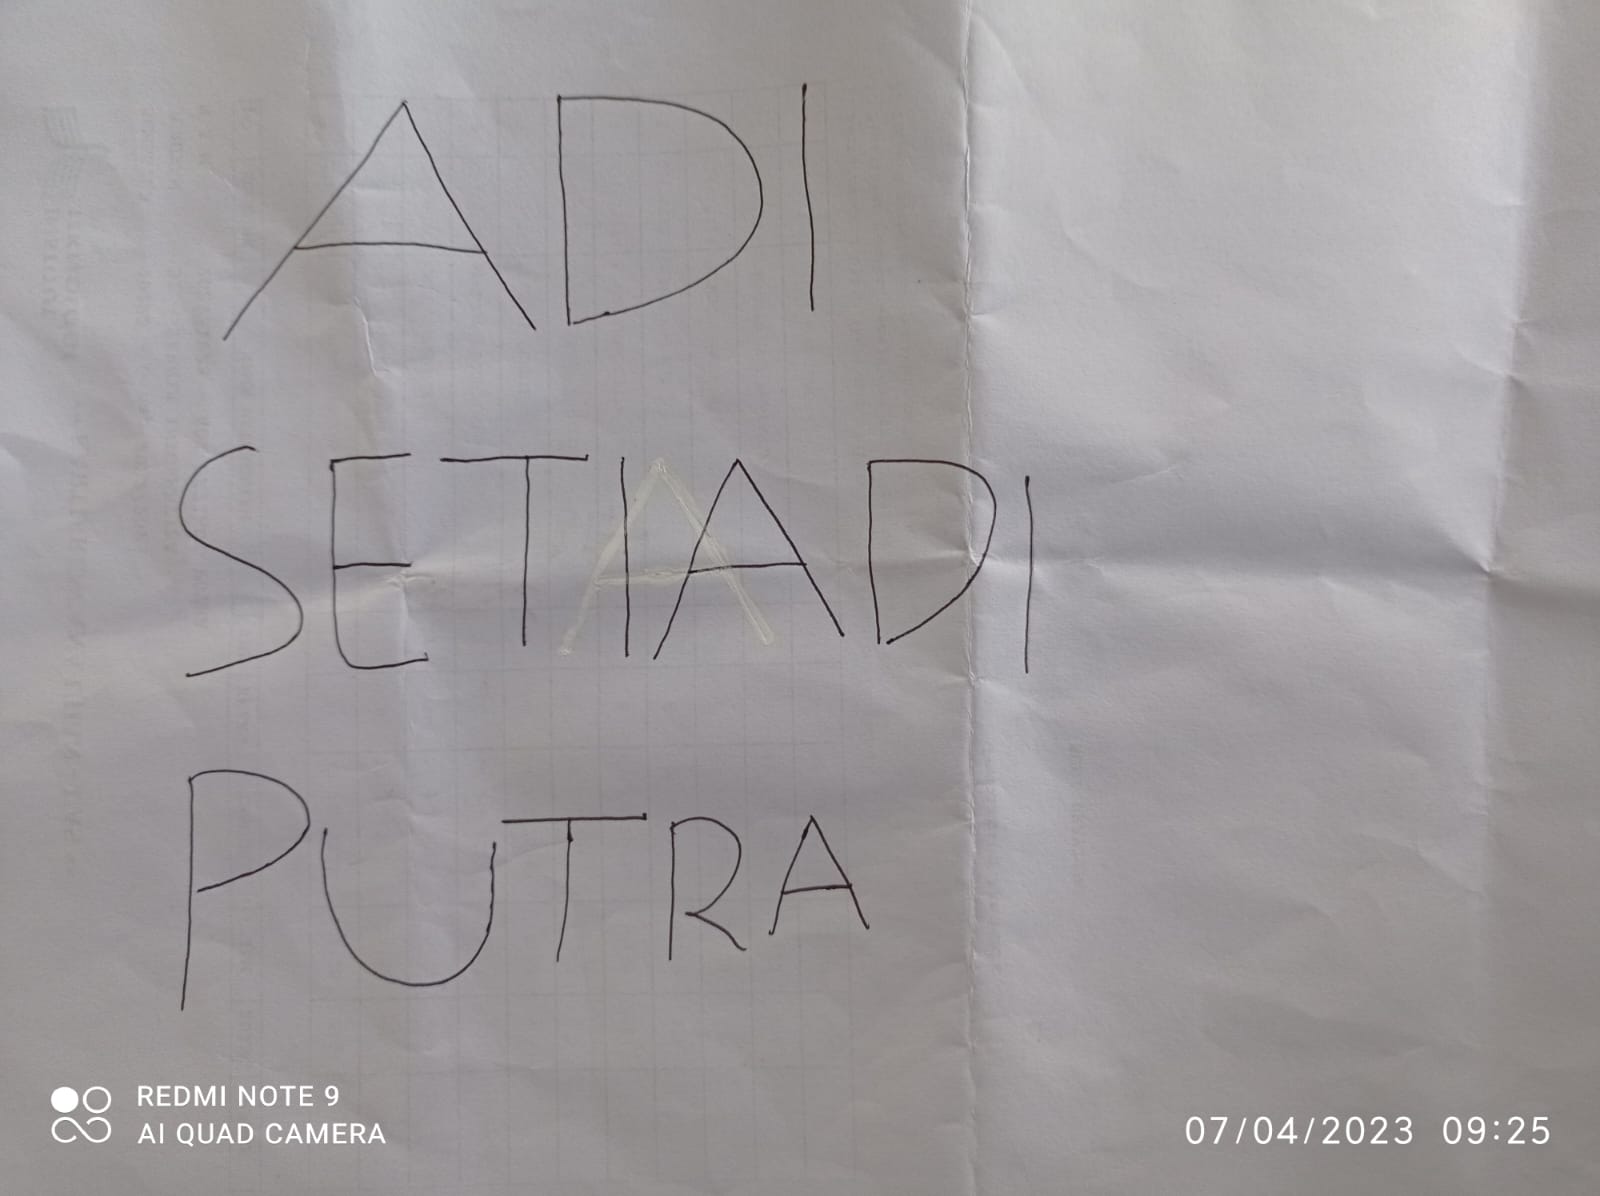 ADI
SETIADI
PUTRA
REDMI NOTE 9
AI QUAD CAMERA
07/04/2023 09:25